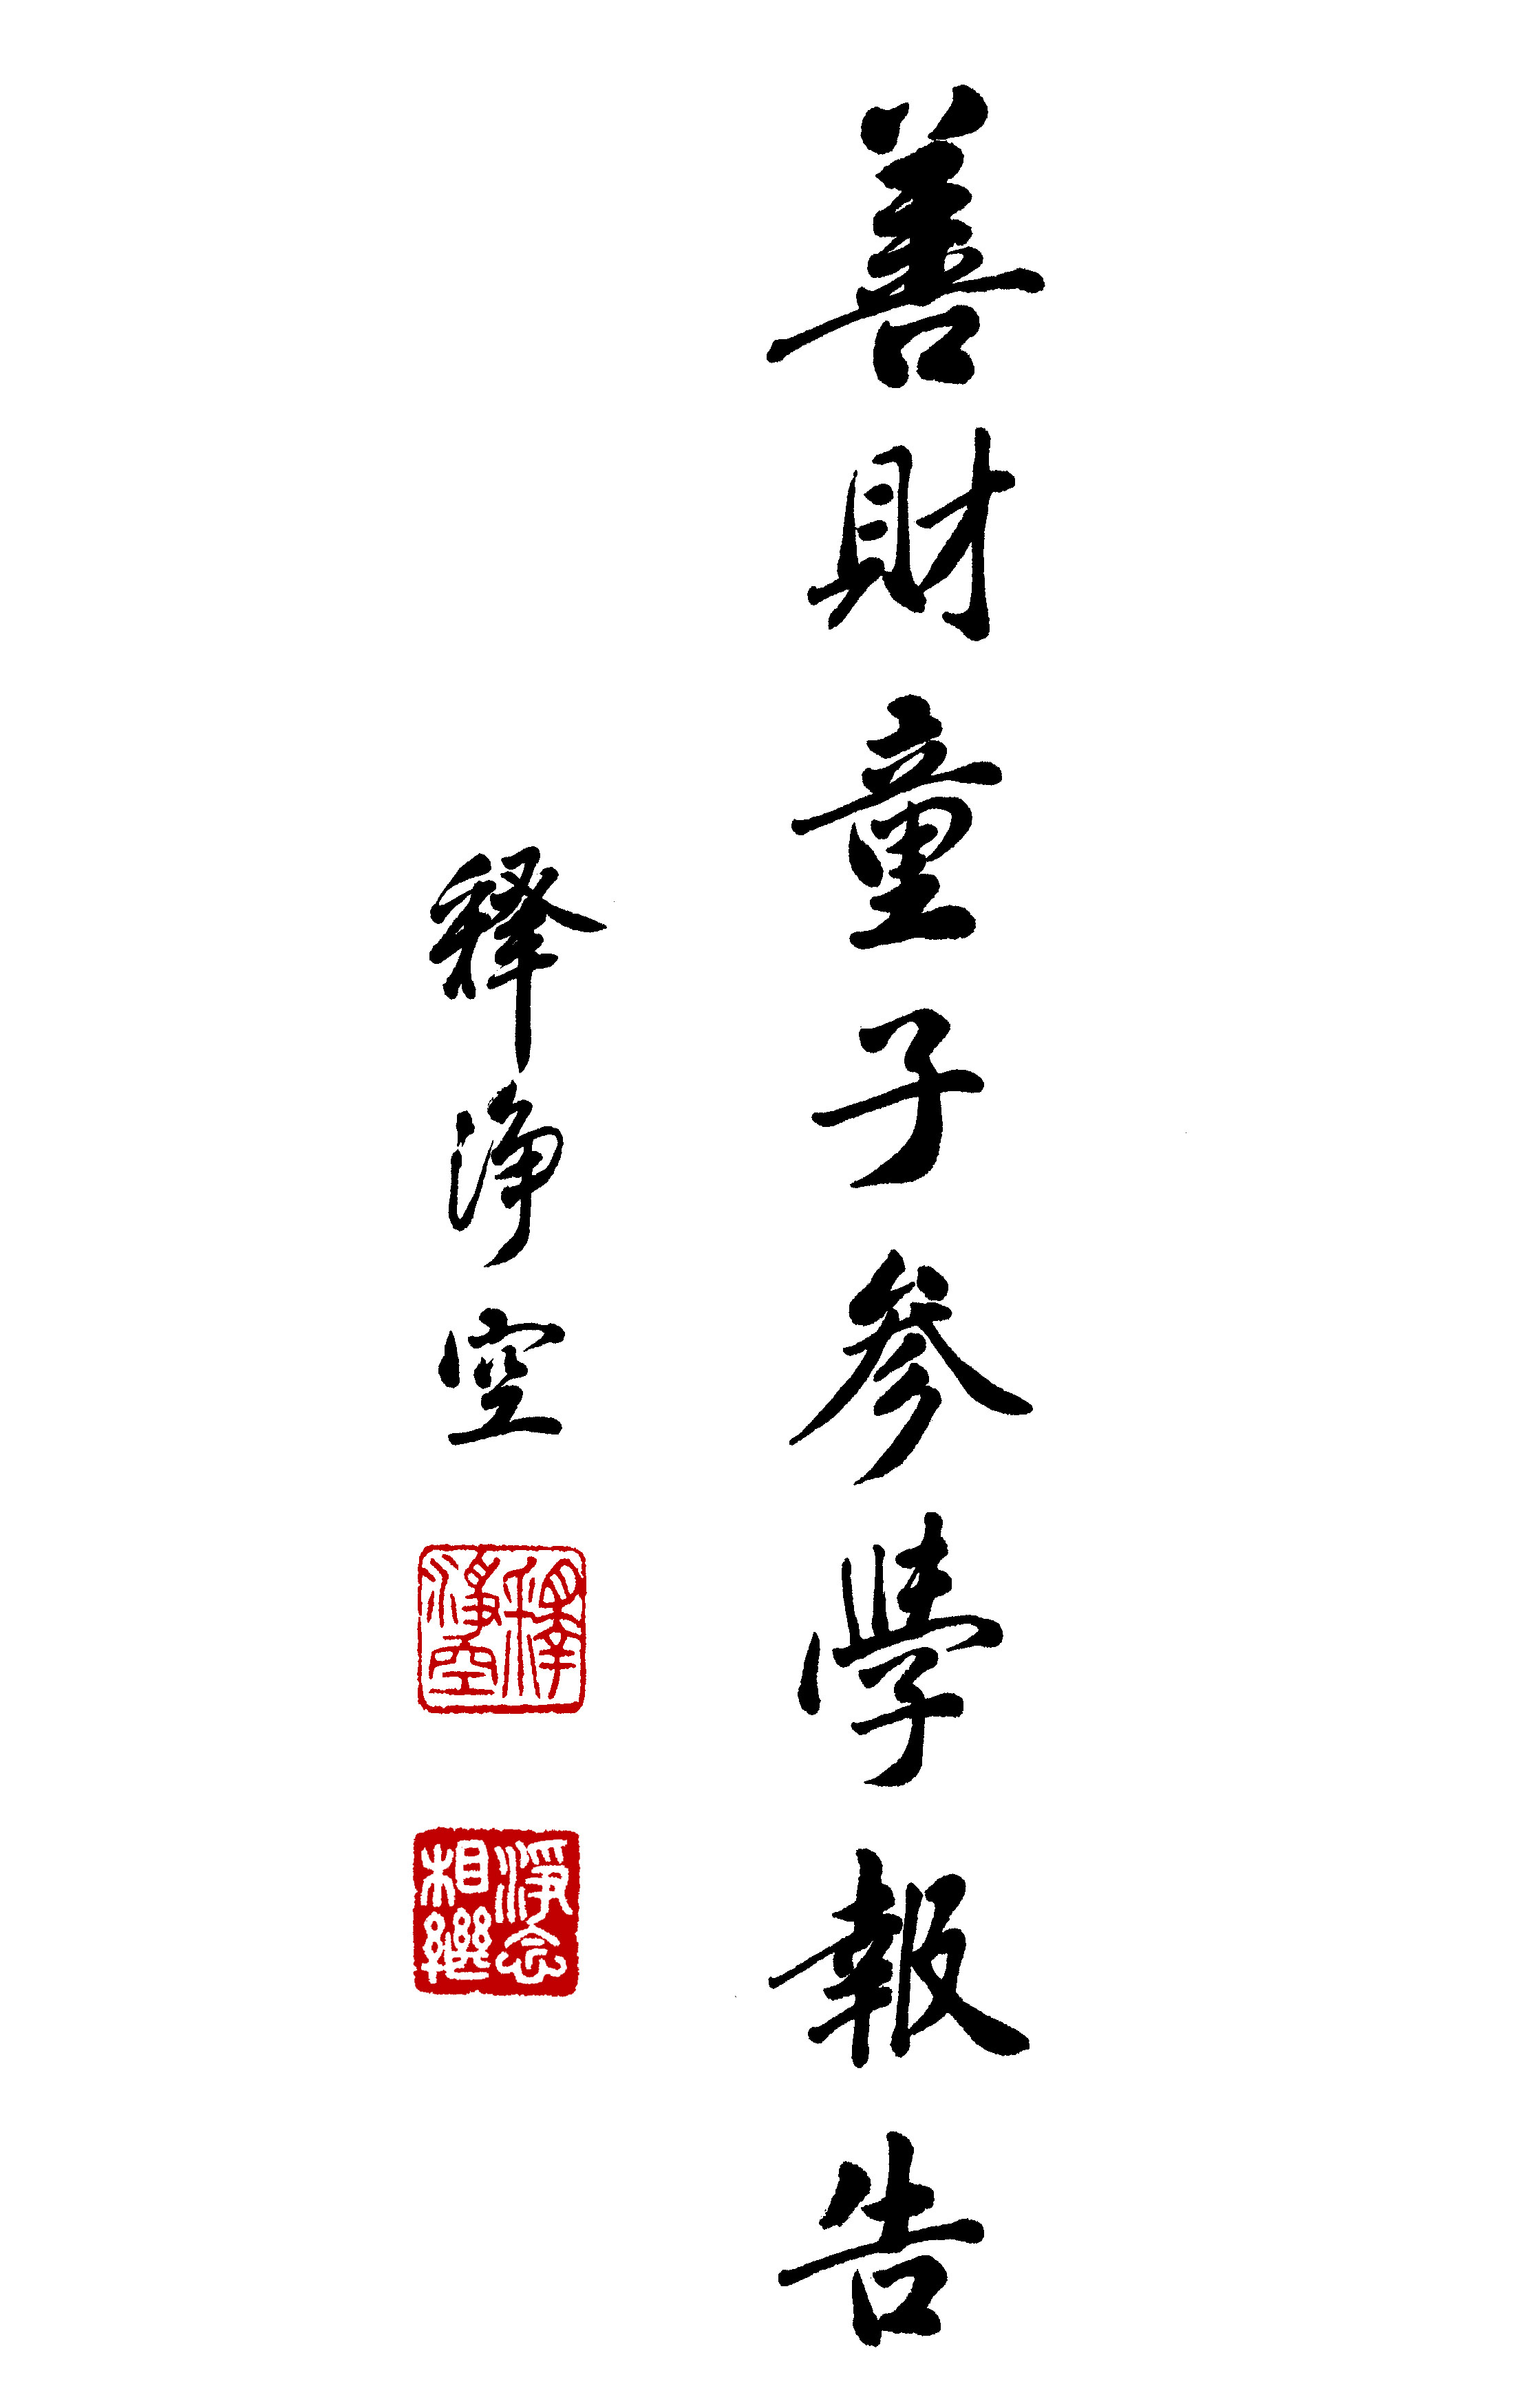 善財童子參學報告
释淨空
釋淨空
淨念相繼